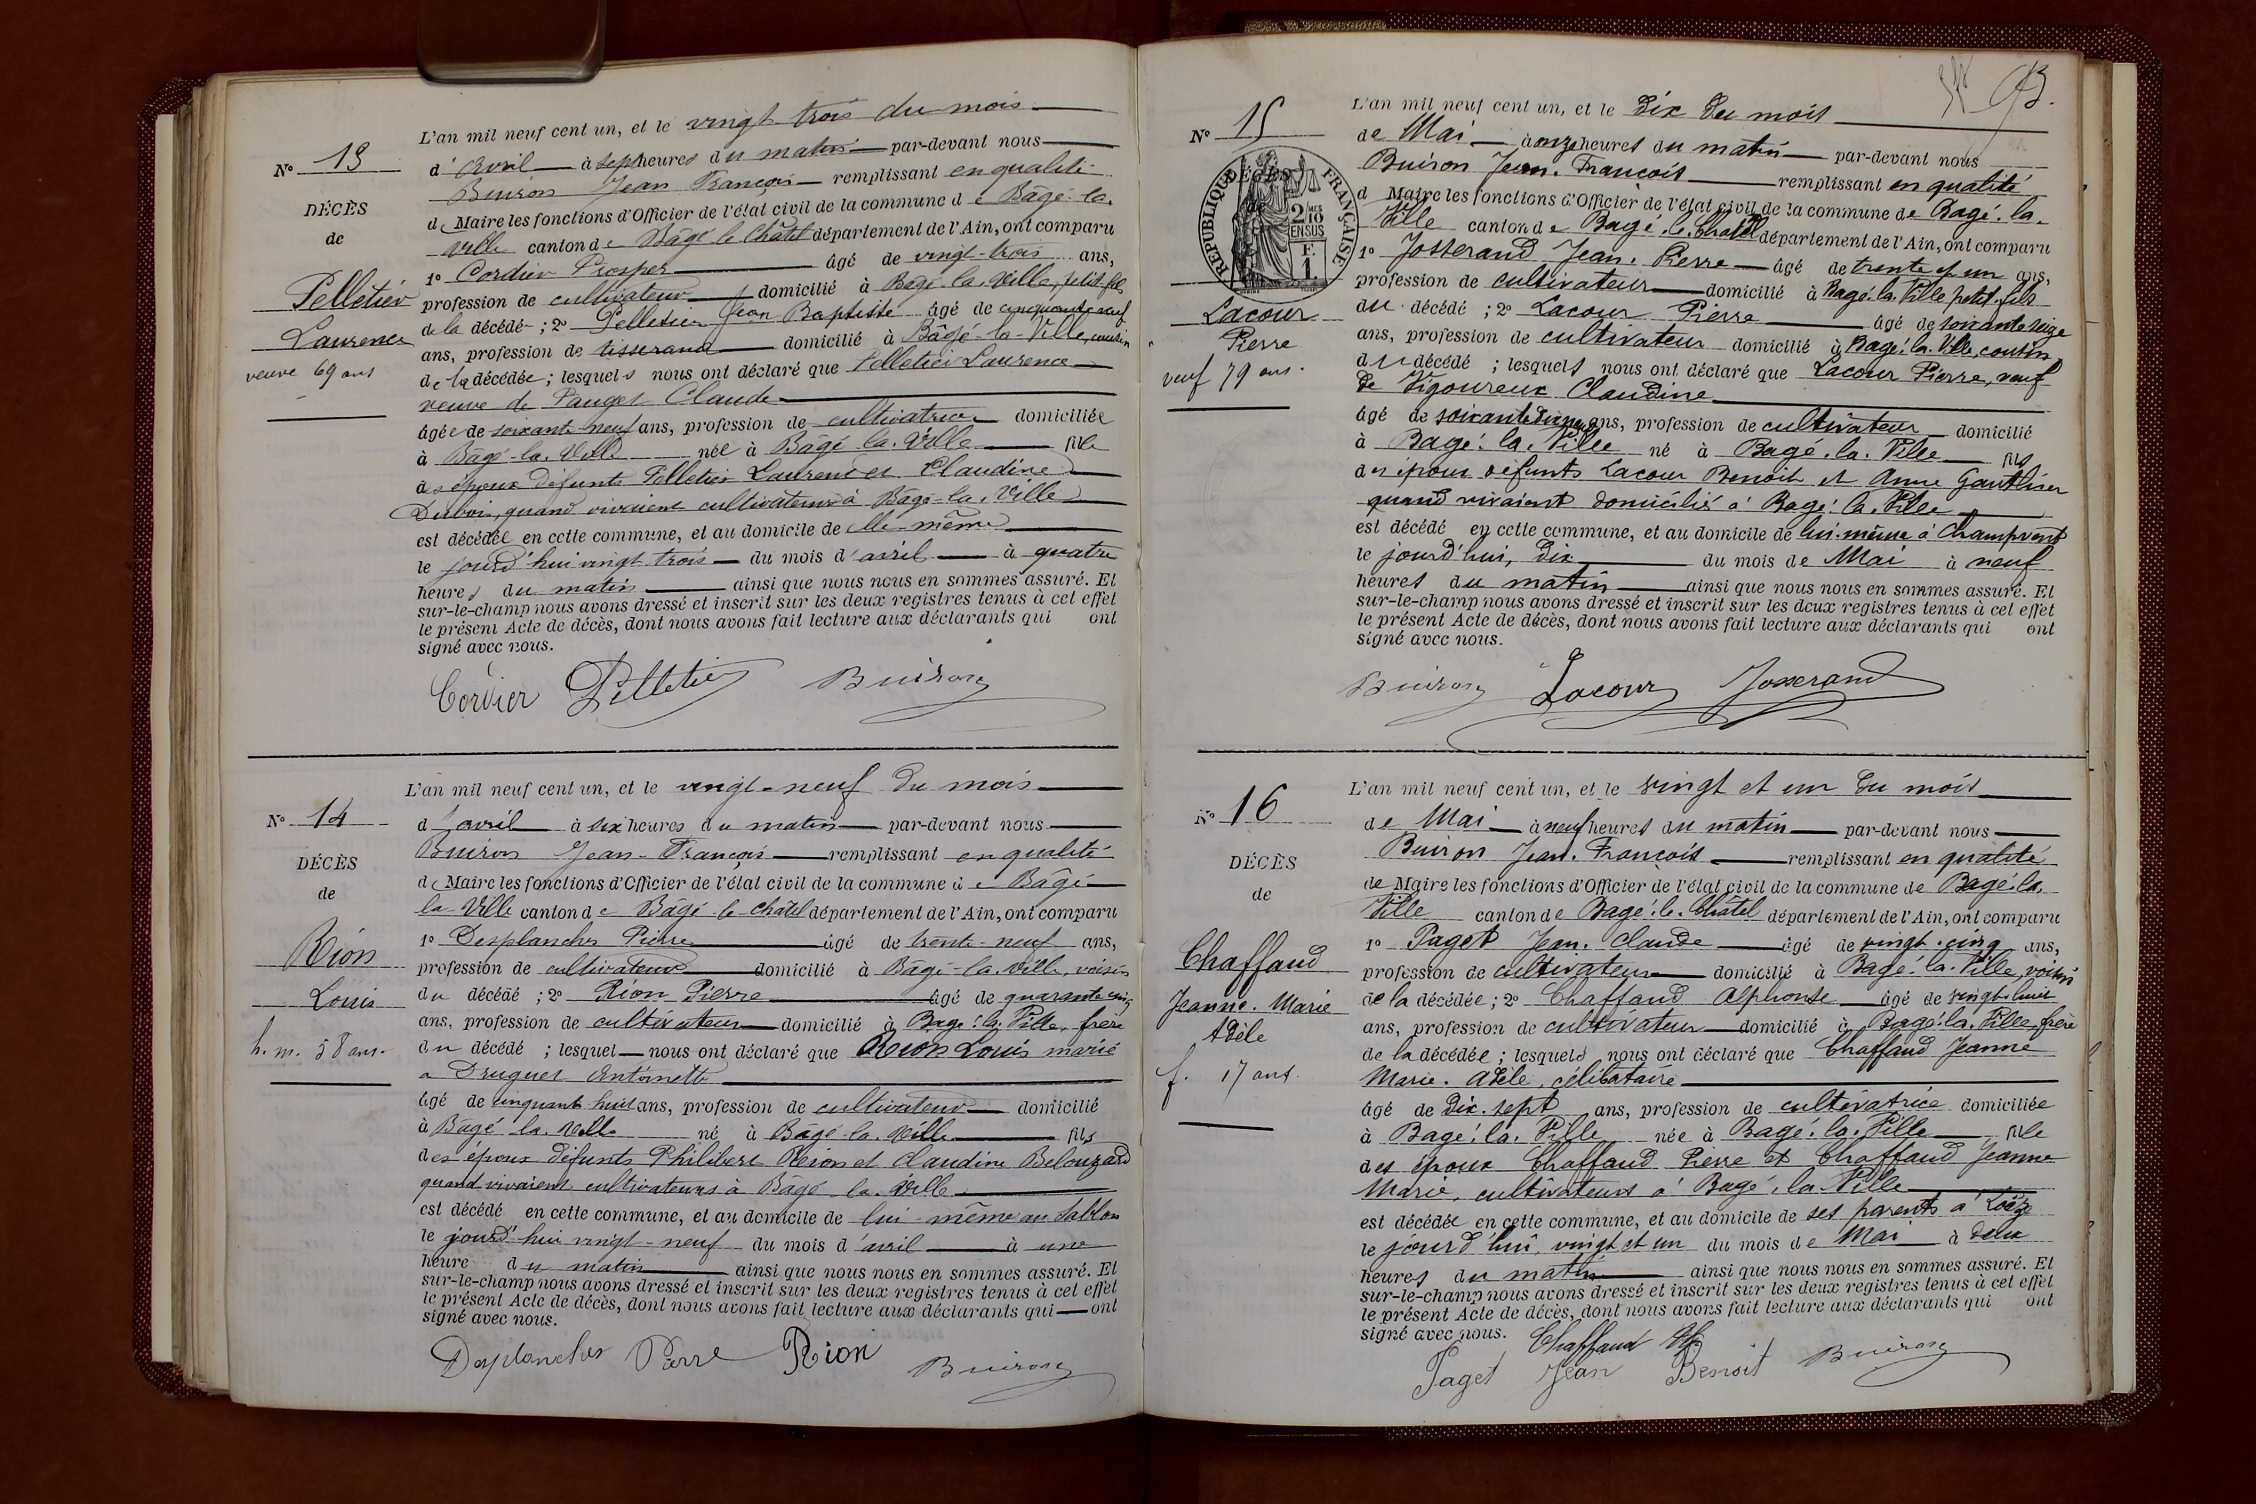 L'an mil neuf cent un, et le vingt trois du mois
N° 13
d'Avril à sept heures du matin par-devant nous
Buiron Jean François remplissant en qualité
DÉCÈS
de Maire les fonctions d'Officier de l'état civil de la commune de Bâgé-la-
de
Ville canton de Bâgé le Châtel département de l'Ain, ont comparu
1° Cordier Prosper âgé de vingt-trois ans,
Pelletier
profession de cultivateur domicilié à Bâgé-la-Ville, petit-fils
de la décédé ; 2° Pelletier Jean Baptiste âgé de cinquante neuf
Laurence
ans, profession de tisserand domicilié à Bâgé-la-Ville, cousin
veuve 69 ans
de la décédée ; lesquels nous ont déclaré que Pelletier Laurence
veuve de Pauget Claude
âgée de soixante neuf ans, profession de cultivatrice domiciliée
à Bâgé-la-Ville née à Bâgé la-Ville fille
des époux défunts Pelletier Laurent et Claudine
Dubois, quand vivaient cultivateurs à Bâgé-la-Ville
est décédée en cette commune, et au domicile de elle-même
le jourd'hui vingt trois du mois d'avril à quatre
heures du matin ainsi que nous nous en sommes assuré. Et
sur-le-champ nous avons dressé et inscrit sur les deux registres tenus à cet effet
le présent Acte de décès, dont nous avons fait lecture aux déclarants qui ont
signé avec nous.
Cordier Pelletier Buiron
L'an mil neuf cent un, et le vingt-neuf du mois
N° 14
d'avril à six heures du matin par-devant nous
Buiron Jean-François remplissant en qualité
DÉCÈS
de Maire les fonctions d'Officier de l'état civil de la commune de Bâgé
de
la Ville canton de Bâgé le Châtel département de l'Ain, ont comparu
1° Desplanches Pierre âgé de trente-neuf ans,
Rion
profession de cultivateur domicilié à Bâgé-la-Ville, voisin
Louis
du décédé ; 2° Rion Pierre âgé de quarante cinq
ans, profession de cultivateur domicilié à Bâgé-la-Ville, frère
h. m. 58 ans.
du décédé ; lesquel nous ont déclaré que Rion Louis marié
a Druguet Antoinette
âgé de cinquante huit ans, profession de cultivateur domicilié
à Bâgé la Ville né à Bâgé-la-Ville fils
des époux défunts Philibert Rion et Claudine Belouzard
quand vivaient cultivateurs à Bâgé-la-Ville
est décédé en cette commune, et au domicile de lui-même au Sablon
le jourd'hui vingt-neuf du mois d'avril à une
heure du matin ainsi que nous nous en sommes assuré. Et
sur-le-champ nous avons dressé et inscrit sur les deux registres tenus à cet effet
le présent Acte de décès, dont nous avons fait lecture aux déclarants qui ont
signé avec nous.
Desplanches Pierre Rion Buiron
93.
L'an mil neuf cent un, et le dix du mois
N° 15
de Mai à onze heures du matin par-devant nous
Buiron Jean. François remplissant en qualité
DÉCÈS
RÉPUBLIQUE FRANÇAISE
2/10 EN SUS
F. 1.
d Maire les fonctions d'Officier de l'état civil de la commune de Bagé-la-
Ville canton de Bagé-le-Châtel département de l'Ain, ont comparu
1° Josserand Jean. Pierre âgé de trente et un ans,
profession de cultivateur domicilié à Bagé-la-Ville petit-fils
Lacour
du décédé ; 2° Lacour Pierre âgé de soixante seize
Pierre
ans, profession de cultivateur domicilié à Bagé-la-Ville, cousin
veuf 79 ans.
du décédé ; lesquels nous ont déclaré que Lacour Pierre, veuf
de Vigoureux Claudine
âgé de soixante dix neuf ans, profession de cultivateur domicilié
à Bagé-la-Ville né à Bagé-la-Ville fils
des époux défunts Lacour Benoit et Anne Gauthier
quand vivaient domiciliés à Bagé-la-Ville
est décédé en cette commune, et au domicile de lui-même à Champvent
le jourd'hui, dix du mois de Mai à neuf
heures du matin ainsi que nous nous en sommes assuré. Et
sur-le-champ nous avons dressé et inscrit sur les deux registres tenus à cet effet
le présent Acte de décès, dont nous avons fait lecture aux déclarants qui ont
signé avec nous.
Buiron Lacour Josserand
L'an mil neuf cent un, et le vingt et un du mois
N° 16
de Mai à neuf heures du matin par-devant nous
Buiron Jean. François remplissant en qualité
DÉCÈS
de Maire les fonctions d'Officier de l'état civil de la commune de Bagé-la-
de
Ville canton de Bagé-le-Châtel département de l'Ain, ont comparu
1° Paget Jean. Claude âgé de vingt-cinq ans,
Chaffaud
profession de cultivateur domicilié à Bagé-la-Ville, voisin
Jeanne-Marie
de la décédée ; 2° Chaffaud Alphonse âgé de vingt-huit
Adèle
ans, profession de cultivateur domicilié à Bagé-la-Ville, frère
f. 17 ans.
de la décédée ; lesquels nous ont déclaré que Chaffaud Jeanne
Marie. Adèle, célibataire
âgé de dix-sept ans, profession de cultivatrice domiciliée
à Bagé-la-Ville née à Bagé-la-Ville fille
des époux Chaffaud Pierre et Chaffaud Jeanne
Marie, cultivateurs à Bagé-la-Ville
est décédée en cette commune, et au domicile de ses parents à Loëze
le jourd'hui vingt et un du mois de Mai à deux
heures du matin ainsi que nous nous en sommes assuré. Et
sur-le-champ nous avons dressé et inscrit sur les deux registres tenus à cet effet
le présent Acte de décès, dont nous avons fait lecture aux déclarants qui ont
signé avec nous. Chaffaud
Paget Jean Benoit Buiron